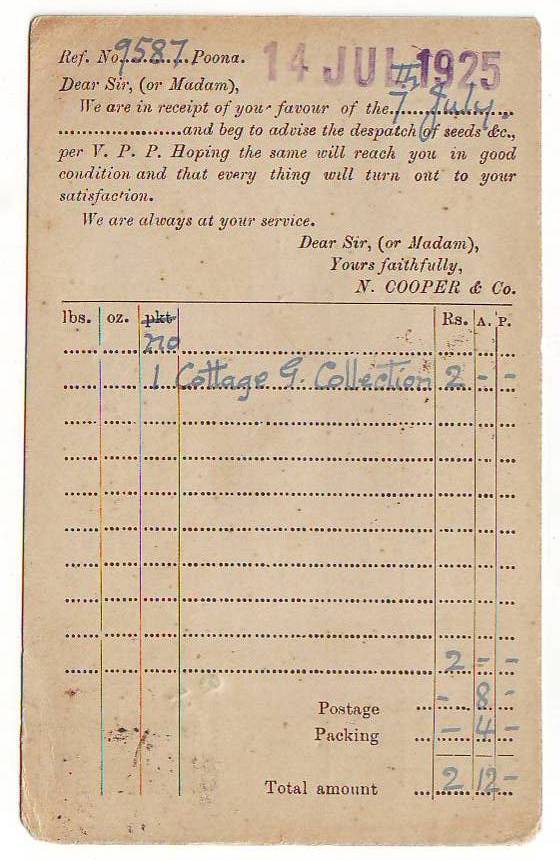 Ref. No. 9587 Poona. 14 JUL 1925
Dear Sir, (or Madam),
We are in receipt of your favour of the 7th July
and beg to advise the despatch of seeds &c.,
per V. P. P. Hoping the same will reach you in good
condition and that every thing will turn out to your
satisfaction.
We are always at your service.
Dear Sir, (or Madam),
Yours faithfully,
N. COOPER & Co.
lbs. oz. pkt Rs. A. P.
no
1 Cottage G. Collection 2 - -
2 - -
Postage - 8 -
Packing - 4 -
Total amount 2 12 -